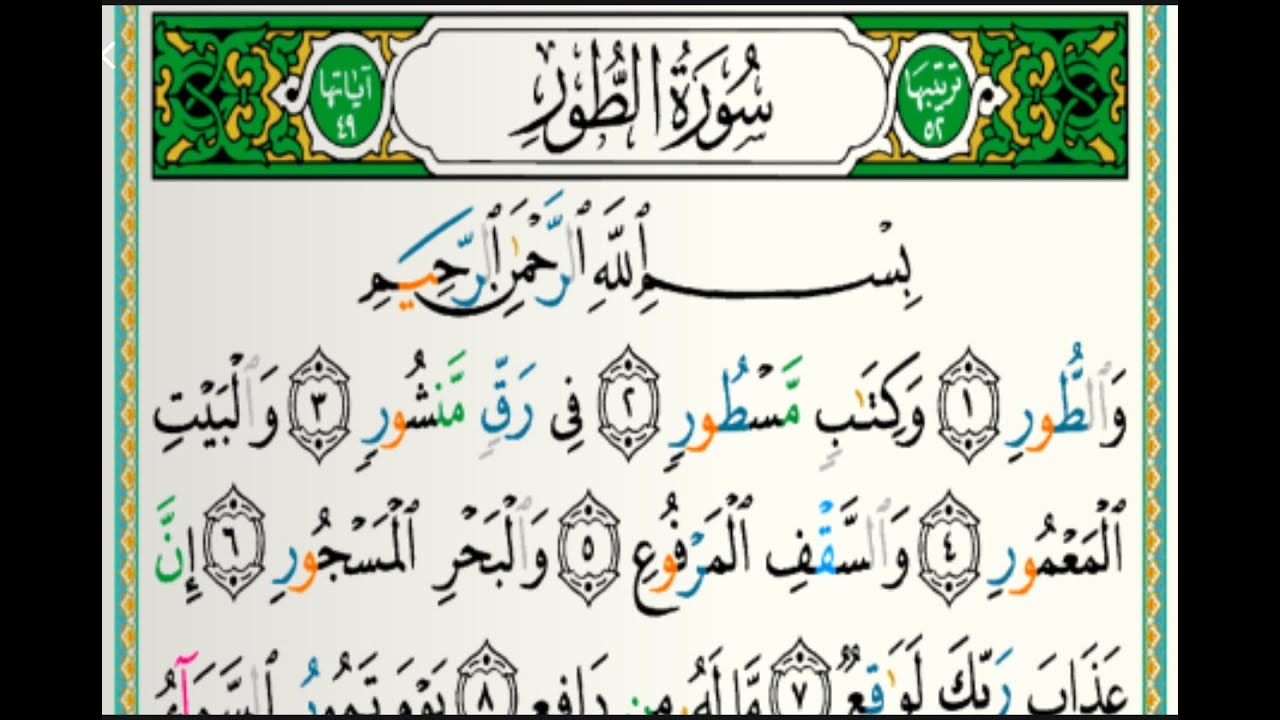 ترتيبها ٥٢ سُورَةُ الطُّورِ آياتها ٤٩
بِسْمِ ٱللَّهِ ٱلرَّحْمَٰنِ ٱلرَّحِيمِ
وَٱلطُّورِ ١ وَكِتَٰبٍ مَّسْطُورٍ ٢ فِى رَقٍّ مَّنشُورٍ ٣ وَٱلْبَيْتِ
ٱلْمَعْمُورِ ٤ وَٱلسَّقْفِ ٱلْمَرْفُوعِ ٥ وَٱلْبَحْرِ ٱلْمَسْجُورِ ٦ إِنَّ
عَذَابَ رَبِّكَ لَوَٰقِعٌ ٧ مَّا لَهُۥ مِن دَافِعٍ ٨ يَوْمَ تَمُورُ ٱلسَّمَآءُ